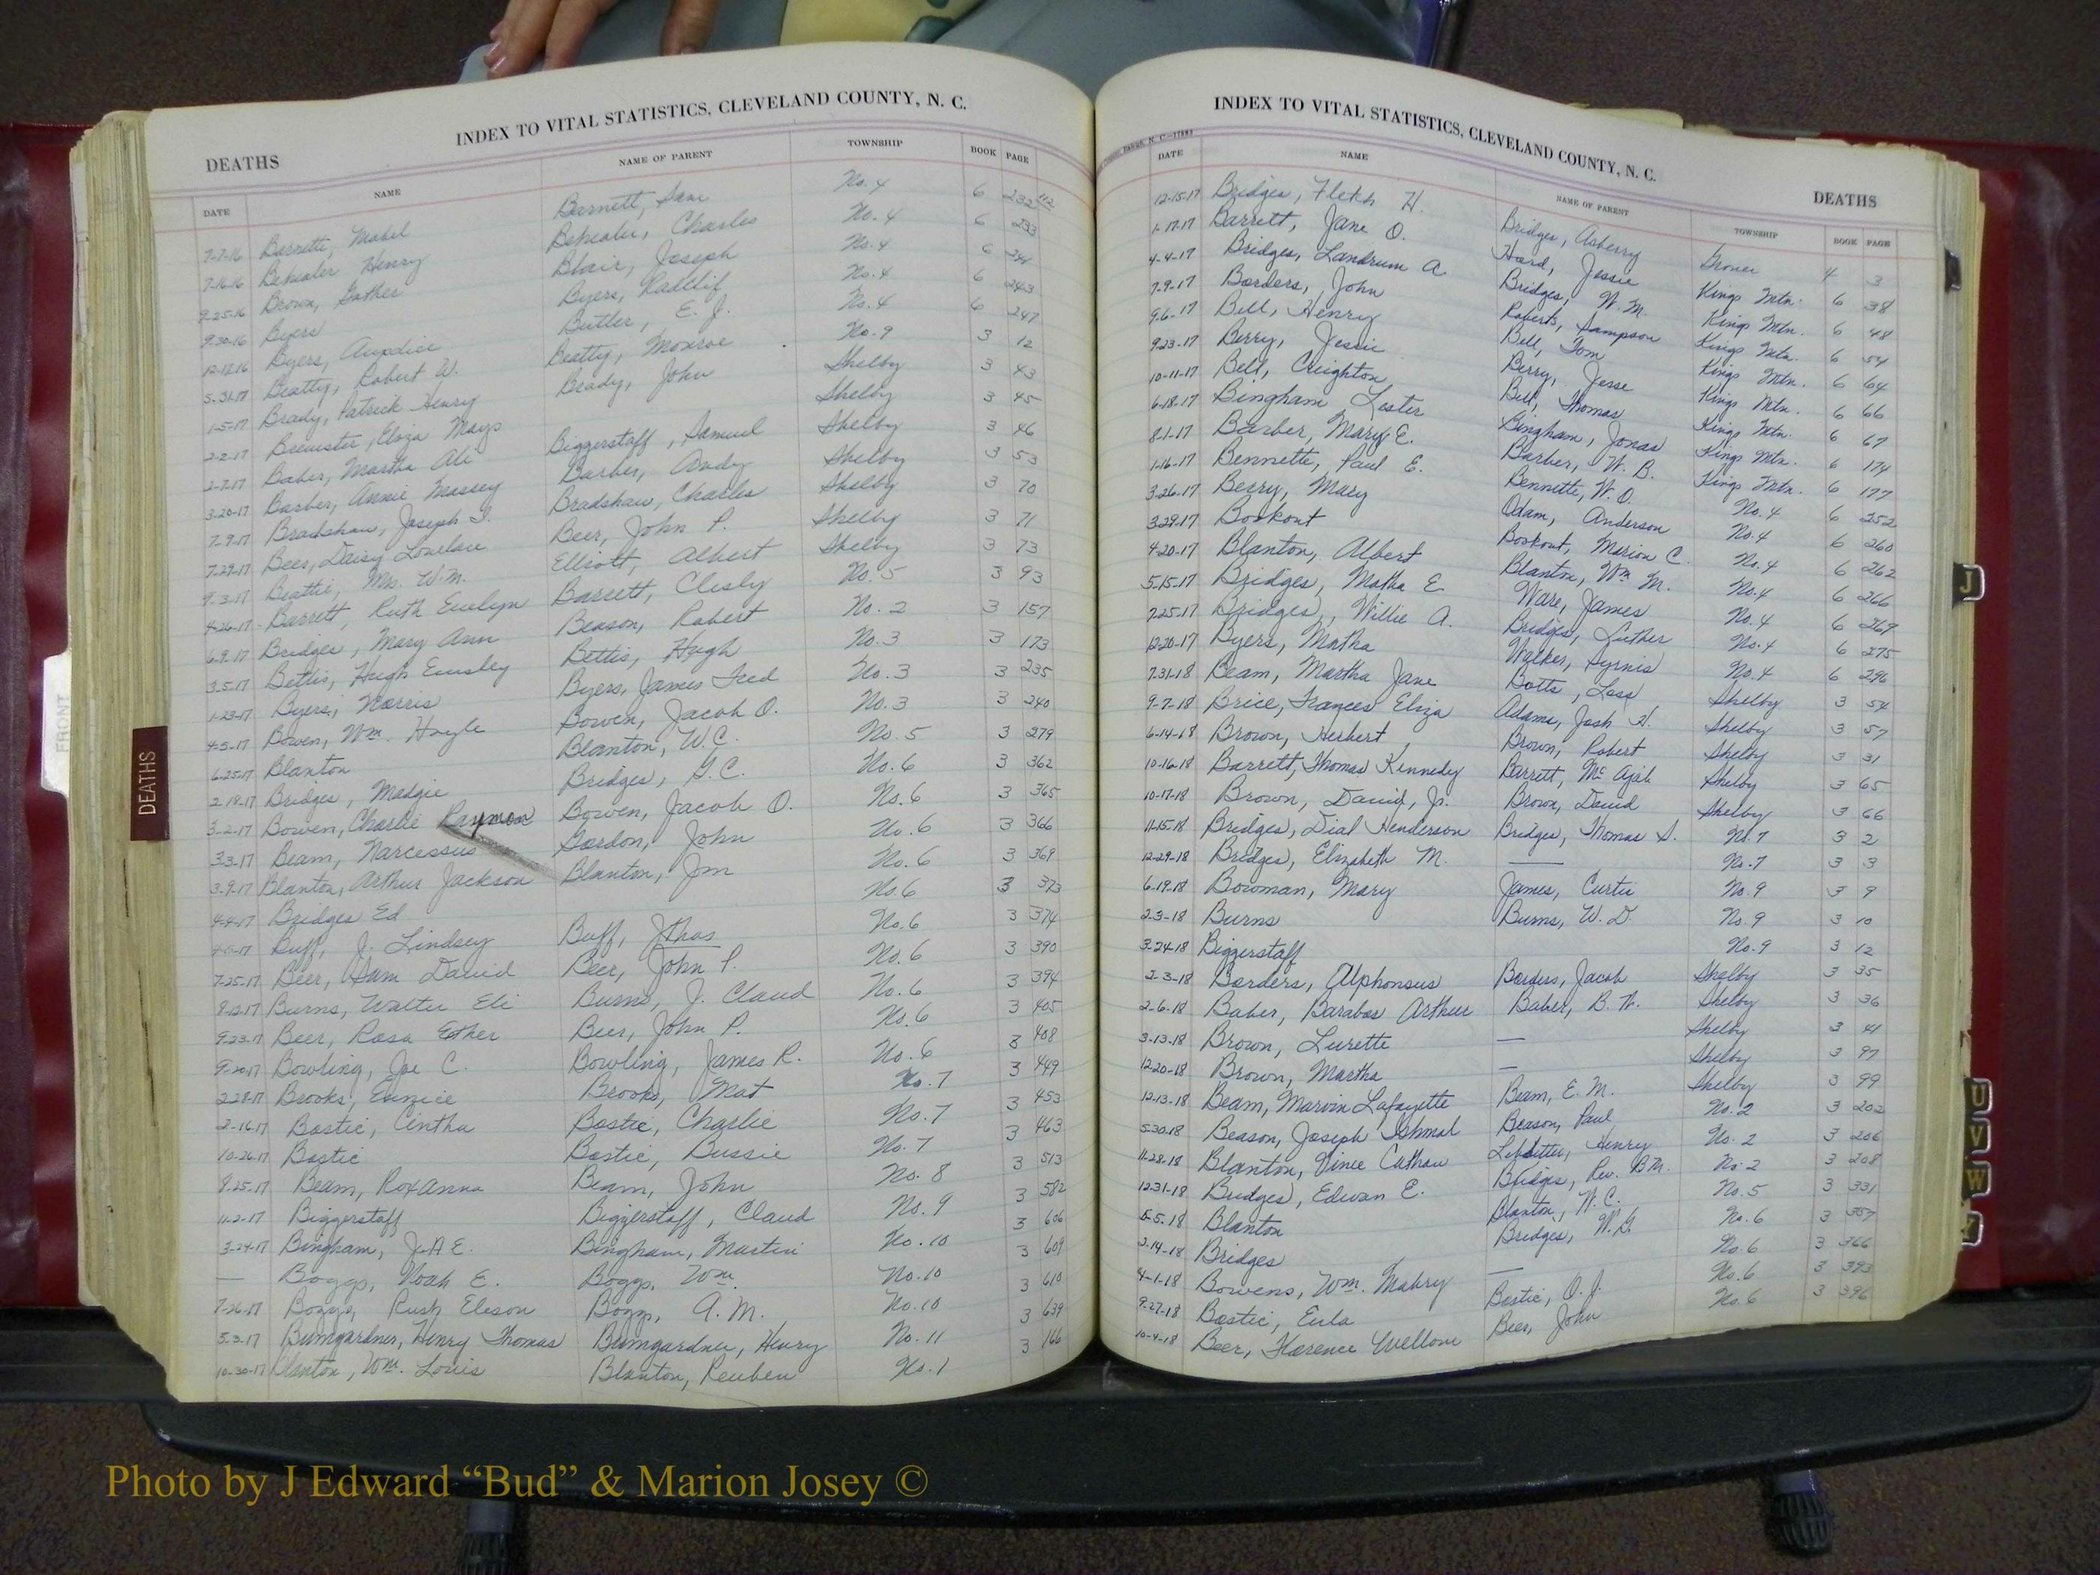 INDEX TO VITAL STATISTICS, CLEVELAND COUNTY, N. C.
DEATHS
DATE NAME NAME OF PARENT TOWNSHIP BOOK PAGE
7-7-16 Barnette, Mabel Barnett, Sam No. 4 6 232 1/2
7-16-16 Behealer Henry Behealer, Charles No. 4 6 233
9-25-16 Brown, Gather Blair, Joseph No. 4 6 241
9-30-16 Byers Byers, Radclif No. 4 6 243
12-12-16 Byers, Butler, E. J. No. 4 6 247
5-31-17 Beatty, Robert W. Beatty, Monroe No. 9 3 12
1-5-17 Brady, Patrick Henry Brady, John Shelby 3 43
2-2-17 Brewster, Eliza Mays Shelby 3 45
2-7-17 Baber, Martha Ali Biggerstaff, Samuel Shelby 3 46
3-20-17 Barber, Annie Massey Barber, Andy Shelby 3 53
7-9-17 Bradshaw, Joseph I. Bradshaw, Charles Shelby 3 70
7-29-17 Beer, Daisy Lovelace Beer, John P. Shelby 3 71
9-3-17 Beattie, Mrs. W.M. Elliott, Albert Shelby 3 73
4-26-17 Barrett, Ruth Evelyn Barrett, Clesby No. 5 3 93
6-9-17 Bridges, Mary Ann Beason, Robert No. 2 3 157
3-5-17 Bettis, Hugh Emsley Bettis, Hugh No. 3 3 173
1-23-17 Byers, Norris Byers, James Fred No. 3 3 235
4-5-17 Bowen, Wm. Hoyle Bowen, Jacob O. No. 3 3 240
6-25-17 Blanton Blanton, W.C. No. 5 3 279
2-19-17 Bridges, Madgie Bridges, G.C. No. 6 3 362
3-2-17 Bowen, Charlie Raymon Bowen, Jacob O. No. 6 3 365
3-3-17 Beam, Narcessus Gordon, John No. 6 3 366
3-9-17 Blanton, Arthur Jackson Blanton, Jm No. 6 3 369
4-4-17 Bridges Ed No 6 3 373
Buff, J. Lindsey Buff, Jthas No. 6 3 374
7-25-17 Beer, Sam David Beer, John P. No. 6 3 390
8-12-17 Burns, Walter Eli Burns, J. Claud No. 6 3 394
9-23-17 Beer, Rosa Esther Beer, John P. No. 6 3 405
9-20-17 Bowling, Joe C. Bowling, James R. No. 6 3 408
2-28-17 Brooks, Eunice Brooks, Mat No. 7 3 449
2-16-17 Bostic, Cintha Bostic, Charlie No. 7 3 453
10-26-17 Bostic Bostic, Bussie No. 7 3 463
8-25-17 Beam, Roxanna Beam, John No. 8 3 513
11-2-17 Biggerstaff Biggerstaff, Claud No. 9 3 582
3-24-17 Bingham, J.A E. Bingham, Martin No. 10 3 606
— Boggs, Noah E. Boggs, Wm. No. 10 3 609
7-26-17 Boggs, Rush Eleson Boggs, A. M. No. 10 3 610
5-3-17 Bumgardner, Henry Thomas Bumgardner, Henry No. 11 3 639
10-30-17 Blanton, Wm. Louis Blanton, Reuben No. 1 3 166
INDEX TO VITAL STATISTICS, CLEVELAND COUNTY, N. C.
DEATHS
DATE NAME NAME OF PARENT TOWNSHIP BOOK PAGE
12-15-17 Bridges, Fletch H. Bridges, Asberry Grover 4 3
1-17-17 Barrett, Jane O. Hord, Jessie Kings Mtn. 6 38
4-4-17 Bridges, Landrum A Bridges, W. M. Kings Mtn. 6 48
7-9-17 Borders, John Roberts, Sampson Kings Mtn. 6 54
9-6-17 Bell, Henry Bell, Tom Kings Mtn. 6 64
9-23-17 Berry, Jessie Berry, Jesse Kings Mtn. 6 66
10-11-17 Bell, Creighton Bell, Thomas Kings Mtn. 6 67
6-18-17 Bingham Lester Bingham, Jonas Kings Mtn. 6 174
8-1-17 Barber, Mary E. Barber, W. B. Kings Mtn. 6 177
1-16-17 Bennette, Paul E. Bennette, W. O. No. 4 6 252
3-26-17 Berry, Mary Odam, Anderson No. 4 6 260
3-29-17 Bookout Bookout, Marion C. No. 4 6 262
4-20-17 Blanton, Albert Blanton, Wm M. No. 4 6 266
5-15-17 Bridges, Matha E Ware, James No. 4 6 269
7-25-17 Bridges, Willie A. Bridges, Luther No. 4 6 275
12-20-17 Byers, Matha Walker, Syrnis No. 4 6 296
7-31-18 Beam, Martha Jane Botts, Lass Shelby 3 54
9-7-18 Brice, Frances Eliza Adams, Josh H. Shelby 3 57
6-14-18 Brown, Herbert Brown, Robert Shelby 3 31
10-16-18 Barrett, Thomas Kennedy Barrett, Mc Ajah Shelby 3 65
10-17-18 Brown, David, Jr. Brown, David Shelby 3 66
11-15-18 Bridges, Dial Henderson Bridges, Thomas S. No. 7 3 2
12-29-18 Bridges, Elizabeth M. — No. 7 3 3
6-19-18 Bowman, Mary James, Curtis No. 9 3 9
2-3-18 Burns Burns, W. D. No. 9 3 10
3-24-18 Biggerstaff No. 9 3 12
2-3-18 Borders, Alphonsus Borders, Jacob Shelby 3 35
2-6-18 Baber, Barabas Arthur Baber, B. H. Shelby 3 36
3-13-18 Brown, Lurette — Shelby 3 41
12-20-18 Brown, Martha — Shelby 3 97
12-13-18 Beam, Marvin Lafayette Beam, E. M. Shelby 3 99
5-30-18 Beason, Joseph Ishmal Beason, Paul No. 2 3 202
11-28-18 Blanton, Vince Cathau Ledbetter, Henry No. 2 3 206
12-31-18 Bridges, Edwan E. Bridges, Rev. B.M. No. 2 3 208
5-5-18 Blanton Blanton, W. C. No. 5 3 331
2-14-18 Bridges Bridges, W.G. No. 6 3 357
4-1-18 Bowens, Wm. Mabry — No. 6 3 366
9-27-18 Bostic, Eula Bostic, O. J. No. 6 3 393
10-4-18 Beer, Florence Wellow Beer, John No. 6 3 396
DEATHS
FRONT
J
U
V
W
Y
Photo by J Edward “Bud” & Marion Josey ©